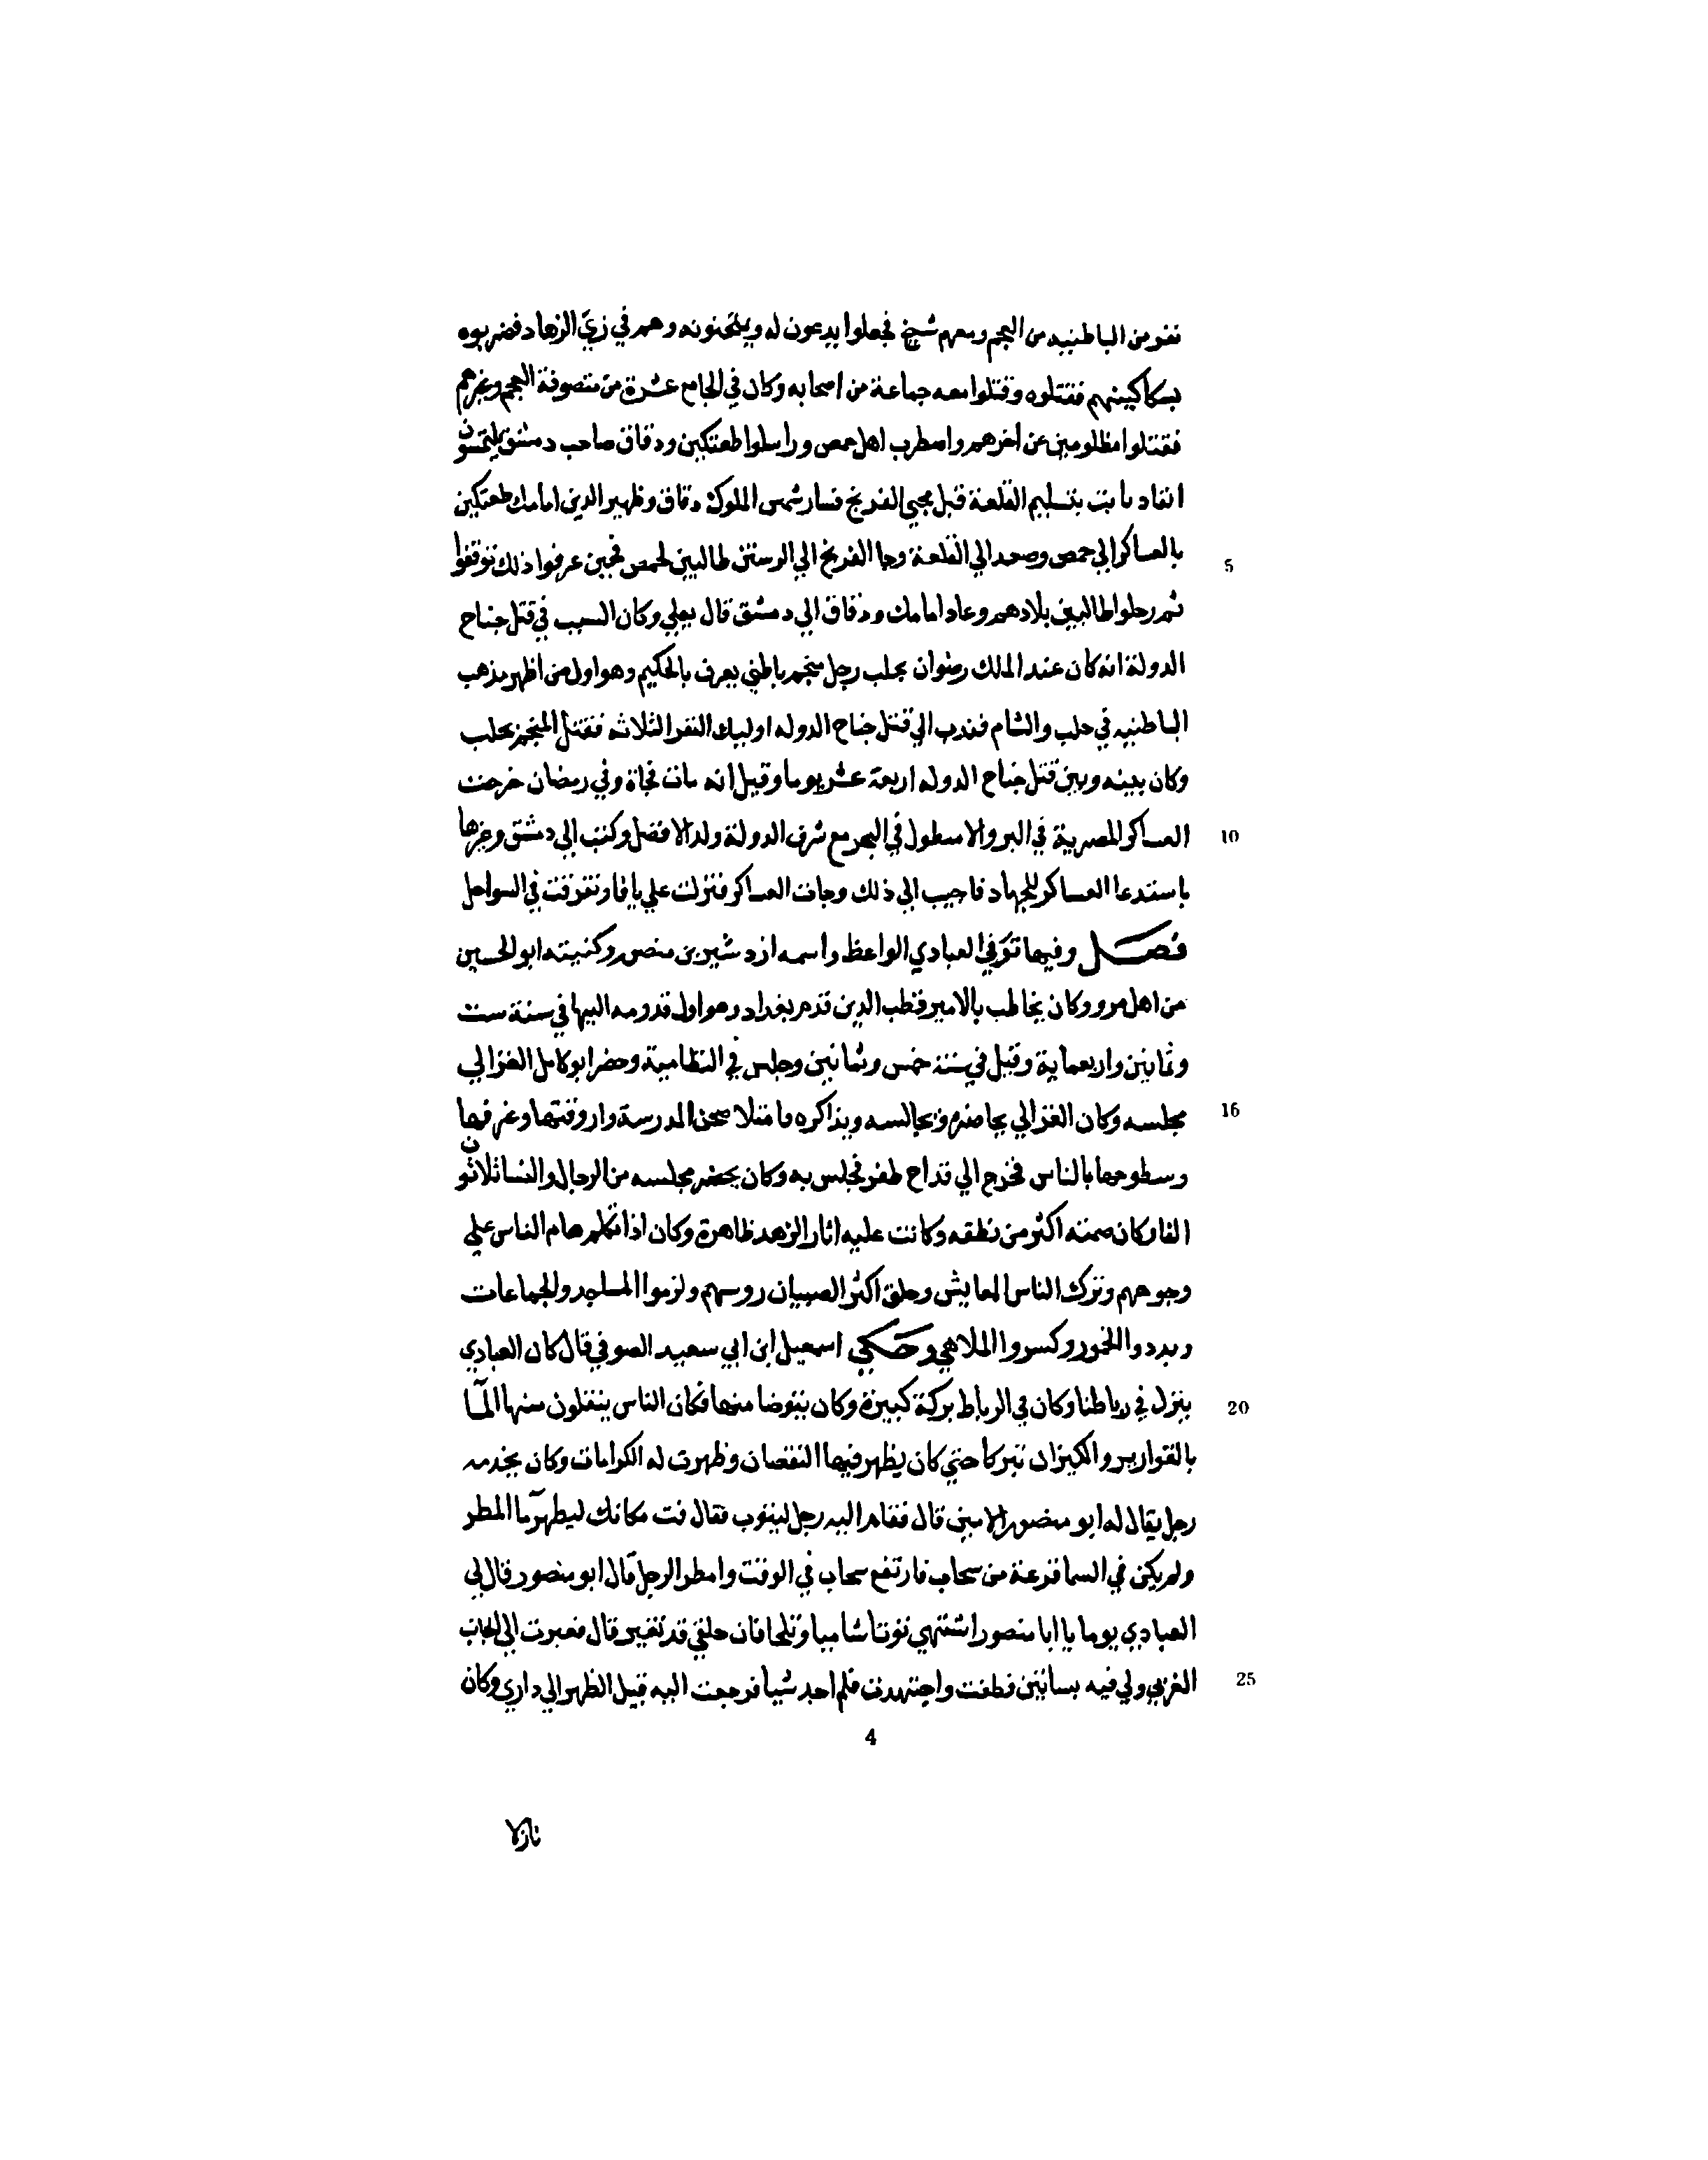 نفر من الباطنيه من العجم ومعهم شيخ فجعلوا يدعون له ويمتحنونه وهم في زيّ الزهاد فضربوه
بسكاكينهم فقتلوه وقتلوا معه جماعة من اصحابه وكان في الجامع عشرة من متصوفة العجم وغيرهم
فقتلوا مظلومين عن اخرهم واضطرب اهل حمص وراسلوا طغتكين ودقاق صاحب دمشق يلتمسون
انفاد نايت بتسليم القلعة قبل مجي الفرنج فسار شمس الملوك دقاق وظهير الدين اتابك طغتكين
5 بالعساكر الي حمص وصعد الي القلعة وجا الفرنج الي الرستن طالبين لحمص فحين عرفوا ذلك توقفوا
ثم رحلوا طالبين بلادهم وعاد اتابك ودقاق الي دمشق قال يعلي وكان السبب في قتل جناح
الدولة انه كان عند الملك رضوان بحلب رجل منجم باطني يعرف بالحكيم وهو اول من اظهر مذهب
الباطنيه في حلب والشام فندب الي قتل جناح الدوله اوليك النفر الثلاثه فقتل المنجم بحلب
وكان بينه وبين قتل جناح الدوله اربعة عشر يوما وقيل انه مات فجاة وفي رمضان خرجت
10 العساكر المصرية في البر والاسطول في البحر مع شرف الدولة ولد الافضل وكتب الي دمشق وغيرها
باستدعا العساكر للجهاد فاجيب الي ذلك وجات العساكر فنزلت علي يافا وتفرقت في السواحل
فصل وفيها توّفي العبادي الواعظ واسمه ازدشير بن منصور وكنيته ابو الحسين
من اهل مرو وكان يخاطب بالامير قطب الدين قدم بغداد وهو اول قدومه اليها في سنة ست
وثمانين واربعماية وقيل في سنة خمس وثمانين وجلس في النظامية وحضر ابو كامل الغزالي
16 مجلسه وكان الغزالي يحاضره ويجالسه ويذاكره فامتلا صحن المدرسة واروقتها وغرفها
وسطوحها بالناس فخرج الي قداح ظفر فجلس به وكان يحضر مجلسه من الرجال والنسا ثلاثون
الفا وكان صمته اكثر من نطقه وكانت عليه اثار الزهد ظاهرة وكان اذا تكلم هام الناس علي
وجوههم وترك الناس المعايش وحلق اكثر الصبيان روسهم ولزموا المساجد والجماعات
وبددوا الخمور وكسروا الملاهي وحكي اسمعيل ابن ابي سعيد الصوفي قال كان العبادي
20 ينزل في رباطنا وكان في الرباط بركة كبيرة وكان يتوضا منها فكان الناس ينقلون منها المآ
بالقوارير والكيزان تبركا حتي كان يظهر فيها النقصان وظهرت له الكرامات وكان يخدمه
رجل يقال له ابو منصور الامين قال فقام اليه رجل ليتوب فقال قف مكانك ليطهرك مآ المطر
ولم يكن في السما قزعة من سحاب فارتفع سحاب في الوقت وامطر الرجل قال ابو منصور قال لي
العبادي يوما يا ابا منصور اشتهي توتا شاميا وثلجا فان حلقي قد تغير قال فعبرت الي الجانب
25 الغربي ولي فيه بساتين فطفت واجتهدت فلم اجد شيا فرجعت اليه قبيل الظهر الي داري وكان
4
نازلا